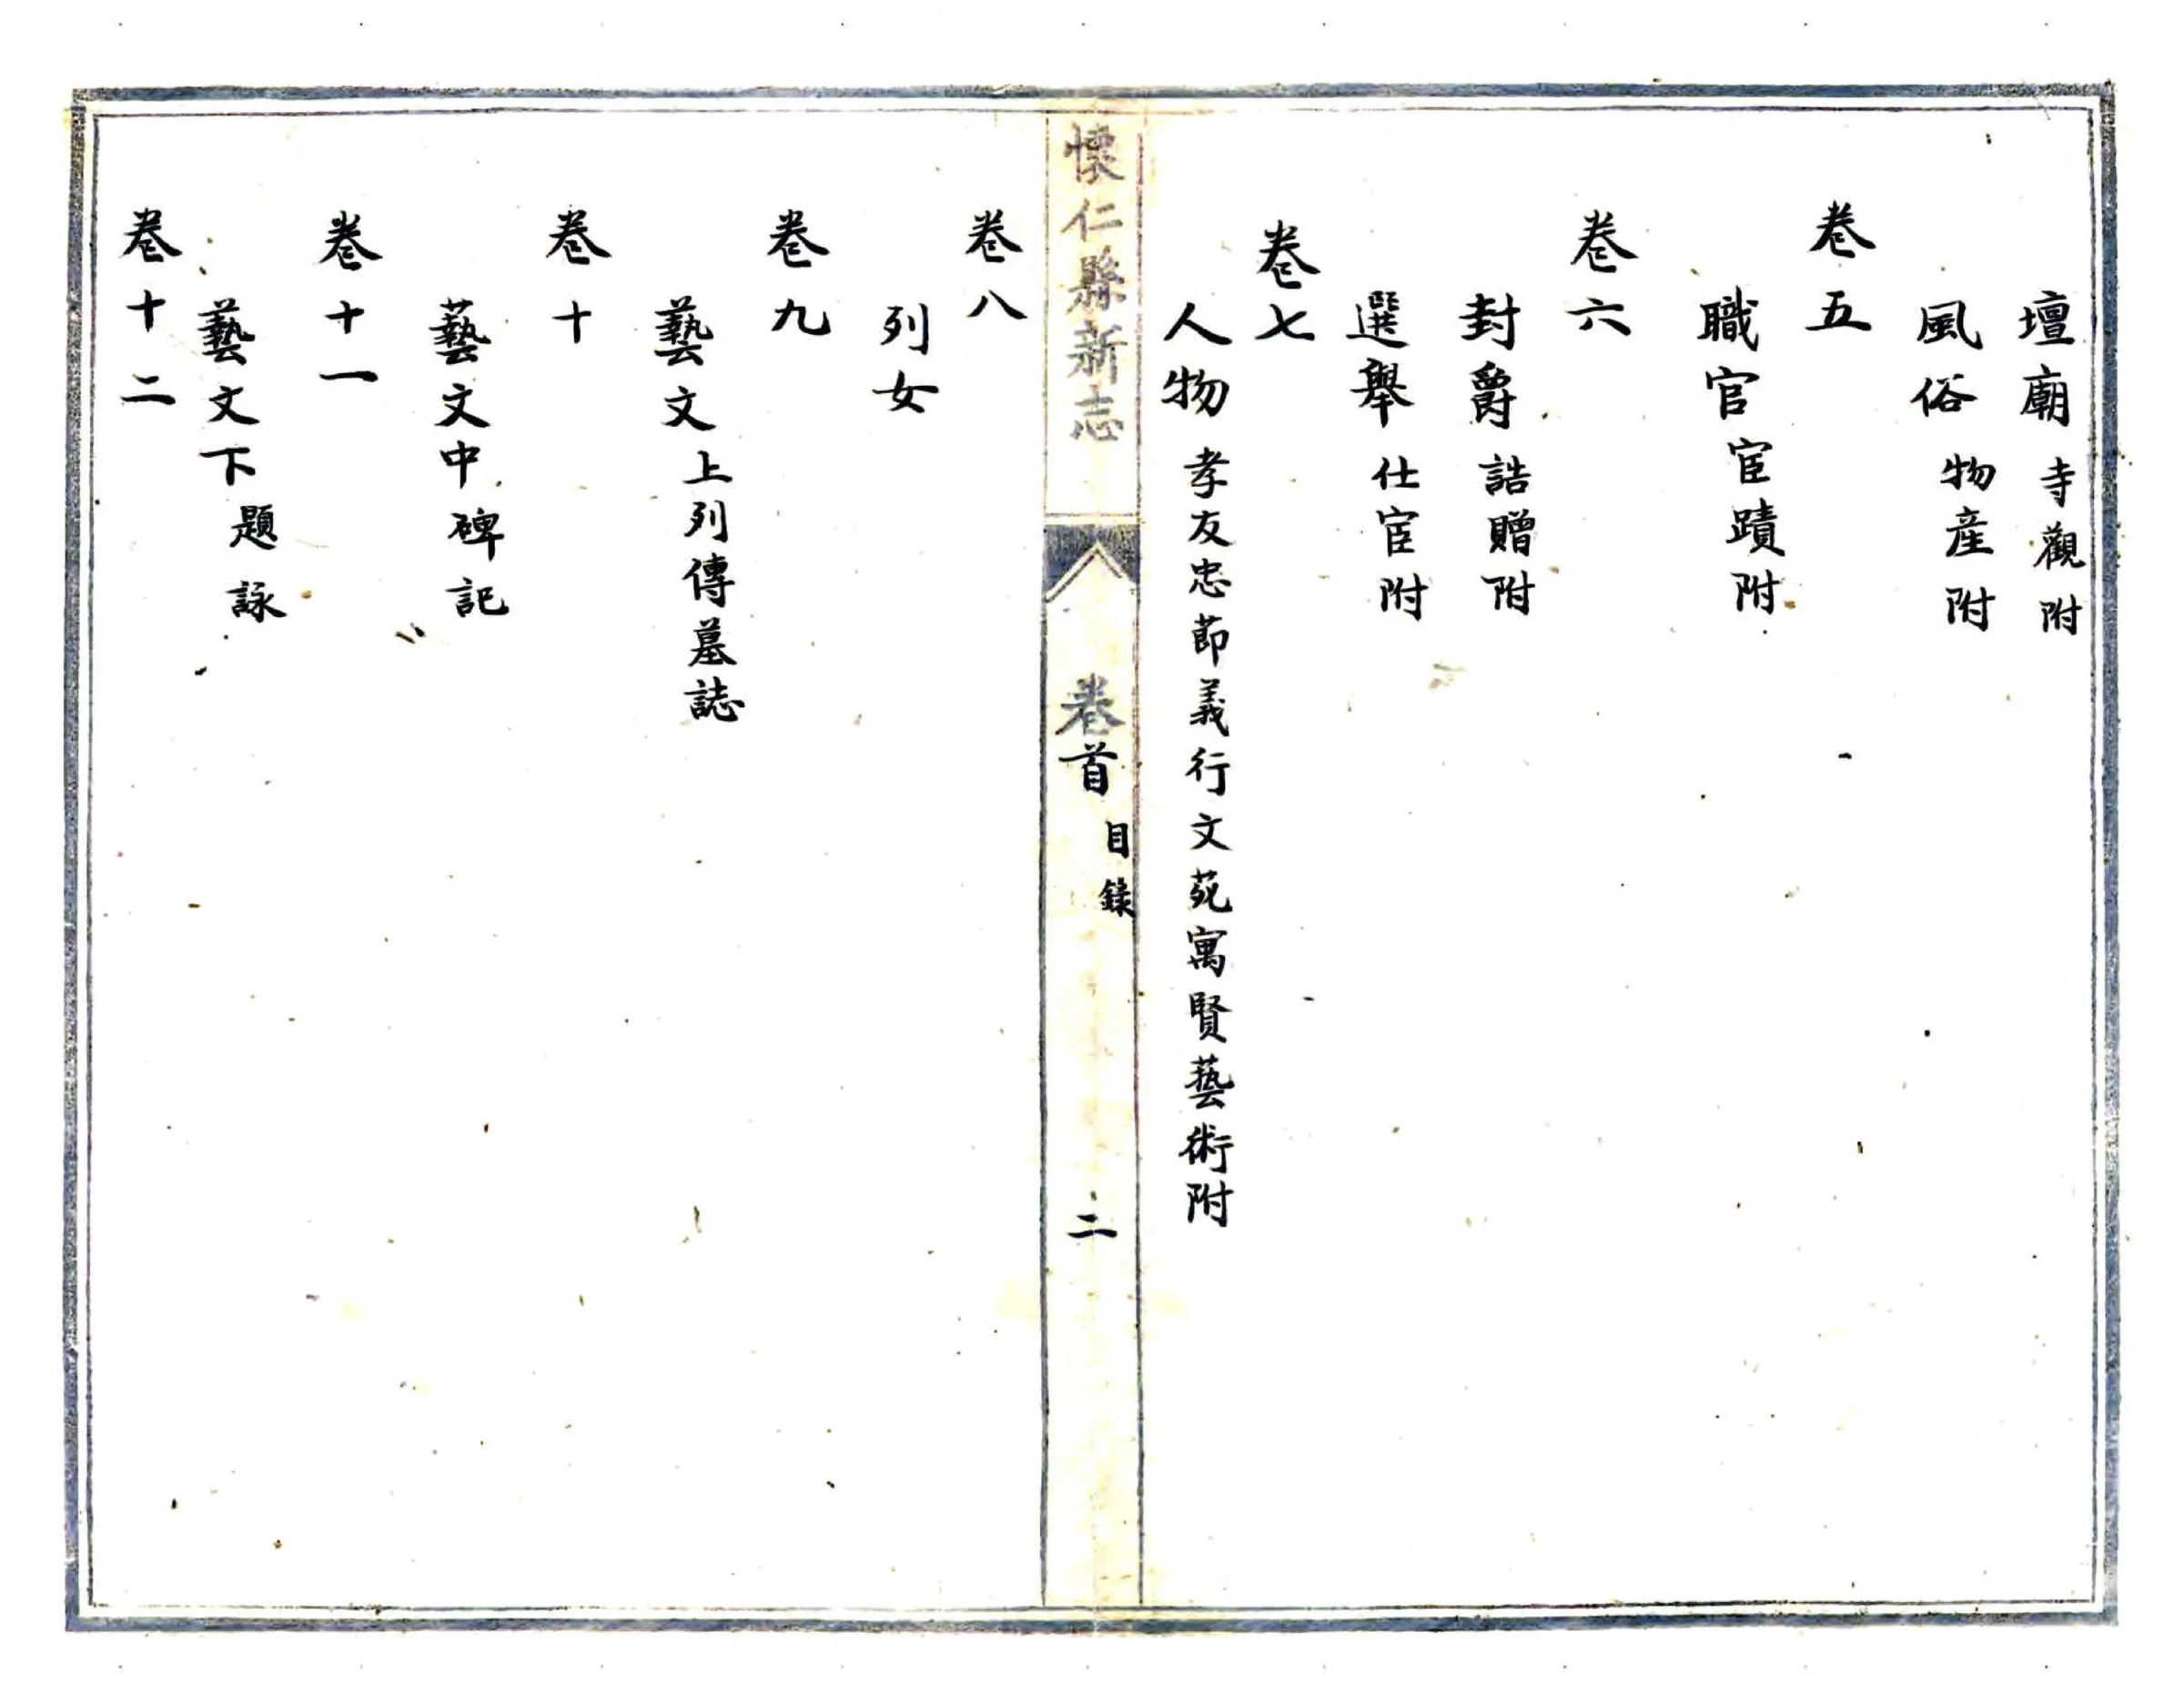 壇廟寺觀附
風俗物産附
卷五
職官宦蹟附
卷六
封爵誥贈附
選舉仕宦附
卷七
人物孝友忠節義行文苑寓賢藝術附
懷仁縣新志
卷首
目錄
二
卷八
列女
卷九
藝文上列傳墓誌
卷十
藝文中碑記
卷十一
藝文下題詠
卷十二